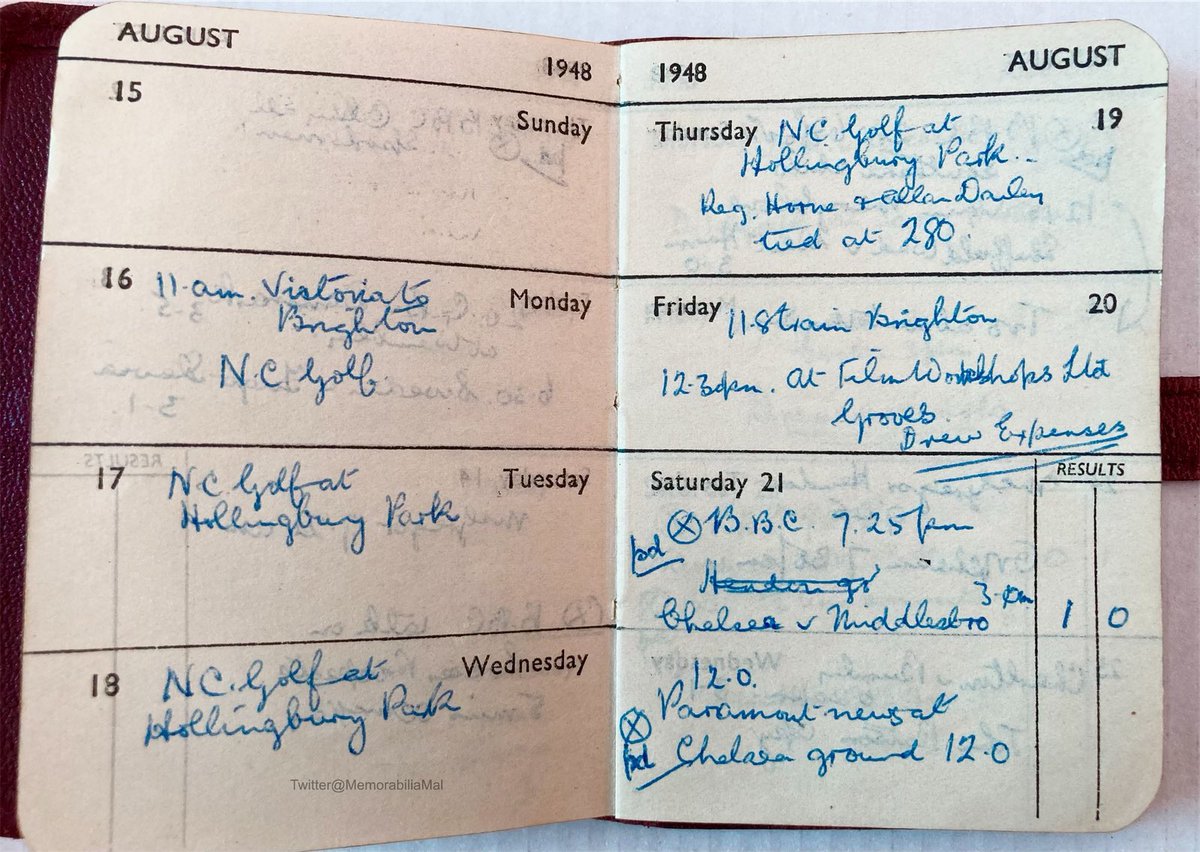 AUGUST
1948
15
Sunday
16
Monday
11-am Victoria to
Brighton
N.C. Golf
17
Tuesday
N.C. Golf at
Hollingbury Park
18
Wednesday
N.C. Golf at
Hollingbury Park
Twitter@MemorabiliaMal
1948
AUGUST
Thursday
19
N.C. Golf at
Hollingbury Park..
Reg. Horne & Allan Dailey
tied at 280.
Friday
20
11-8 train Brighton
12-30pm. at Film Workshops Ltd
Groves.
Drew Expenses
Saturday 21
RESULTS
B.B.C. 7.25pm
pd
3-pm
Chelsea v Middlesbro 1 0
12.0.
Paramount news at
pd Chelsea ground 12.0